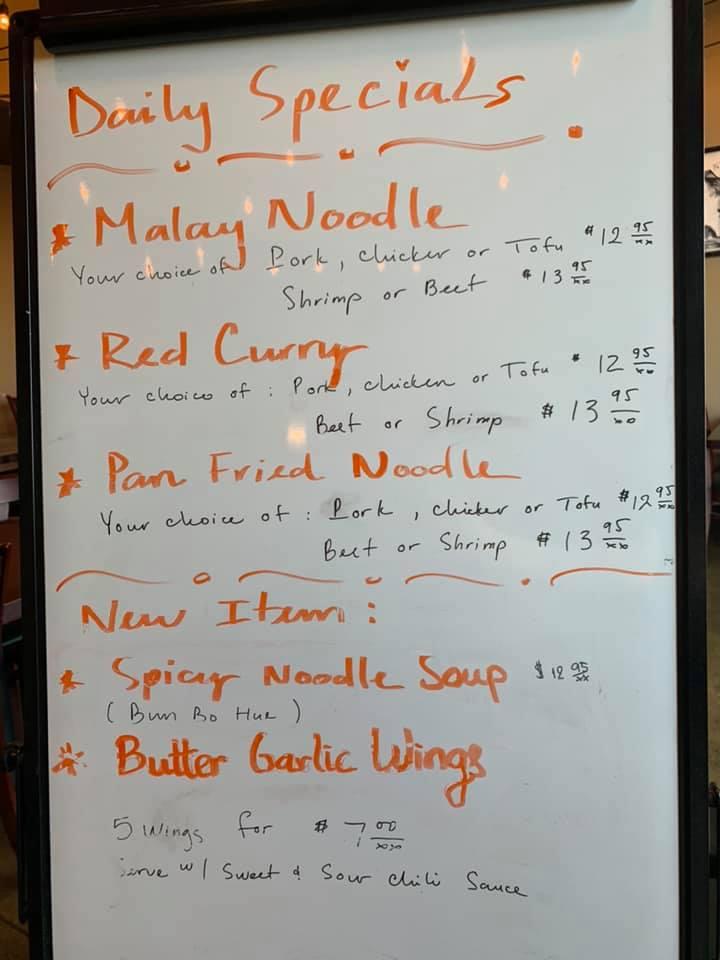 Daily Specials
* Malay Noodle
Your choice of Pork, chicken or Tofu $12 95/xx
Shrimp or Beef $13 95/xx
* Red Curry
Your choice of : Pork, chicken or Tofu $12 95/xx
Beef or Shrimp $13 95/xx
* Pan Fried Noodle
Your choice of : Pork, chicken or Tofu $12 95/xx
Beef or Shrimp $13 95/xx
New Item :
* Spicy Noodle Soup $12 95/xx
( Bun Bo Hue )
* Butter Garlic Wings
5 Wings for $7 00/xx
Serve w/ Sweet & Sour Chili Sauce